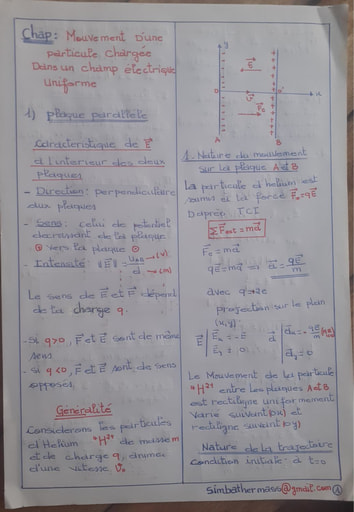 Chap: Mouvement D'une
particule Chargée
Dans un champ électrique
uniforme
1) plaque parallèle
Caractéristique de E⃗
à l'interieur des deux
plaques
- Direction: perpendiculaire
aux plaques
- Sens: celui de potentiel
decroissant de la plaque
⊕ vers la plaque ⊖
- Intensité: ||E⃗|| = U_AB / d → (V) → (m)
Le sens de E⃗ et F⃗ dépend
de la charge q.
- Si q>0, F⃗ et E⃗ sont de même
sens.
- si q<0, F⃗ et E⃗ sont de sens
opposés.
Généralité
Considerons les particules
d'Helium "H²⁺" de masse m
et de charge q, animée
d'une vitesse V⃗₀
y
E⃗
O
V⃗₀
F⃗e
x
A
B
1. Nature du mouvement
sur la plaque A et B
La particule d'helium est
soumis à la force F⃗e = qE⃗
D'après TCI
ΣF⃗ext = ma⃗
F⃗e = ma⃗
qE⃗ = ma⃗ ⇒ a⃗ = qE⃗/m
avec q = 2e
projection sur le plan
(x,y):
Le Mouvement de la particule
"H²⁺" entre les plaques A et B
est rectiligne uniformement
Varie suivant (ox) et
rectiligne suivant (oy)
Nature de la trajectoire
Condition initiale à t=0
Simbathermass@gmail.com